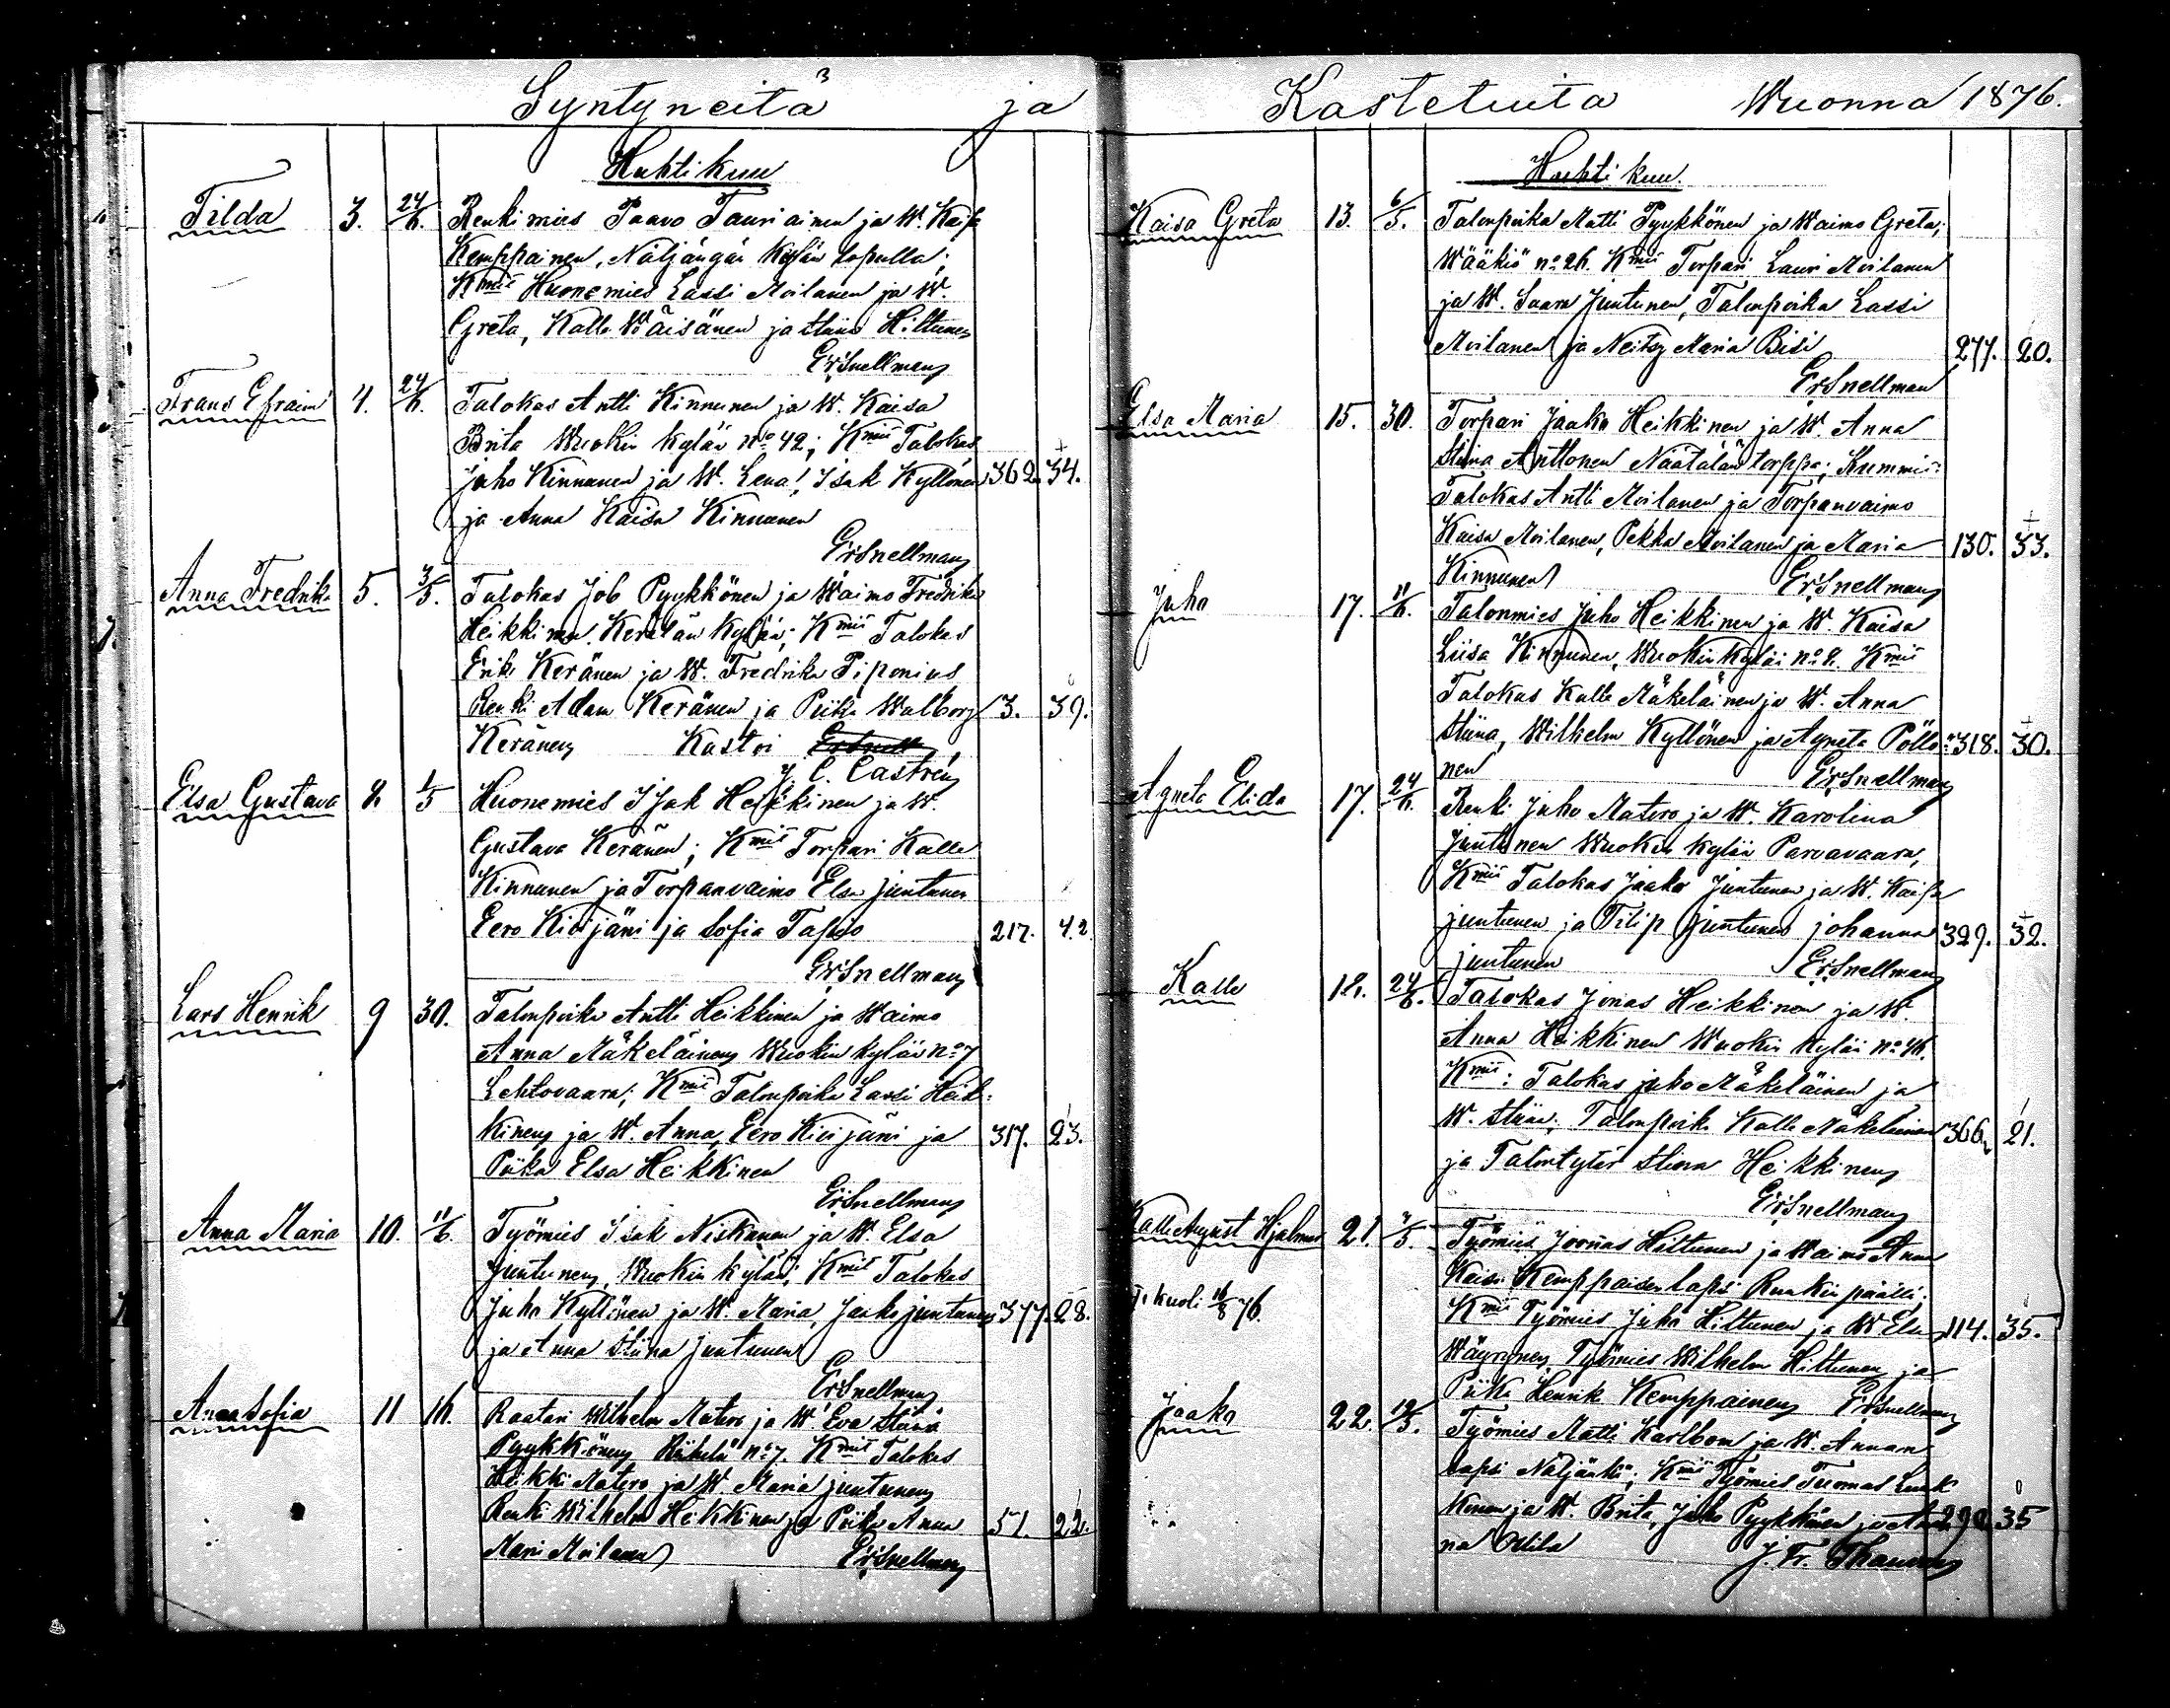 Syntyneitä ja Kastetuita Wuonna 1876.
Huhtikuu
Tilda 3. 24/6. Renkimies Paavo Tauriainen ja W. Kaisa
Kemppainen, Näljängän Kylän lopulla;
Kmit Huonemies Lassi Moilanen ja W.
Greta, Kalle Wäisänen ja Stiina Hiltunen
Er. Snellman
Frans Efraim 4. 24/6. Talokas Antti Kinnunen ja W. Kaisa
Brita Wuokin kylän No 42; Kmit Talokas
Juho Kinnunen ja W. Leena; Isak Kyllönen 362. 34.
ja Anna Kaisa Kinnunen
Er. Snellman
Anna Fredrika 5. 3/5. Talokas Job Pyykkönen ja Waimo Fredrika
Heikkinen, Kerälän Kylän; Kmit Talokas
Erik Keränen ja W. Fredrika Piponius
Renki Adam Keränen ja Piika Walborg 3. 39.
Keränen Kastoi Er Snell
J. C. Castrén
Elsa Gustava 8. 1/5 Huonemies Isak Heikkinen ja W.
Gustava Keränen; Kmit Torpari Kalle
Kinnunen ja Torpanvaimo Elsa Juntunen
Eero Kivijäni ja Sofia Tapio 217. 42
Er. Snellman
Lars Henrik 9 30. Talonpoika Antti Heikkinen ja Waimo
Anna Mäkeläinen Wuokin kylän No 7
Lehtovaara; Kmit Talonpoika Lassi Heik-
kinen ja W. Anna, Eero Kivijäni ja 317. 23.
Piika Elsa Heikkinen
Er. Snellman
Anna Maria 10. 11/6. Työmies Isak Niskanen ja W. Elsa
Juntunen, Wuokin kylän; Kmit Talokas
Juho Kyllönen ja W. Maria, Jaako Juntunen 377. 28.
ja Anna Stiina Juntunen
Er. Snellman
Anna Sofia 11 16. Raatari Wilhelm Matero ja W. Eva Stiina
Pyykkönen No 7. Kmit Talokas
Heikki Matero ja W. Maria Juntunen
Renki Wilhelm Heikkinen ja Piika Anna 51. 22.
Mari Moilanen Er. Snellman
Huhtikuu.
Kaisa Greta 13. 6/5. Talonpoika Matti Pyykkönen ja Waimo Greta;
Wääkiö no 26. Kmit Torpari Lauri Moilanen
ja W. Saara Juntunen, Talonpoika Lassi
Moilanen ja Neitsy Maria Bisi 277. 20.
Er. Snellman
Elsa Maria 15. 30. Torpari Jaako Heikkinen ja W. Anna
Stiina Anttonen Näätälän torppa; Kummi:
Talokas Antti Moilanen ja Torpanvaimo
Kaisa Moilanen, Pekka Moilanen ja Maria 130. 33.
Kinnunen Er. Snellman
Juho 17. 11/6. Talonmies Juho Heikkinen ja W. Kaisa
Liisa Kinnunen, Wuokin kylän no 8. Kmit
Talokas Kalle Mäkeläinen ja W. Anna
Stiina, Wilhelm Kyllönen ja Agneta Pöllö- 318. 30.
nen Er. Snellman
Agneta Elida 17. 24/6. Renki Juho Matero ja W. Karolina
Juntunen Wuokin kylän Parvavaara,
Kmit Talokas Jaako Juntunen ja W. Kaisa
Juntunen ja Filip Juntunen Johanna 329. 32.
Juntunen Er. Snellman
Kalle 18. 24/6. Talokas Jonas Heikkinen ja W.
Anna Heikkinen Wuokin kylän no 46.
Kmit: Talokas Juho Mäkeläinen ja
W. Stiina; Talonpoika Kalle Mäkeläinen 366. 21.
ja Talontytär Stiina Heikkinen
Er. Snellman
Kalle August Hjalmar 21. 7/5. Työmies Joonas Hiltunen ja Waimo Anna
Kaisa Kemppaisen lapsi Ruukin päälli;
kuoli 16/8 76. Kmit Työmies Juho Hiltunen ja W Elsa 114. 35.
Wäyrynen, Työmies Wilhelm Hiltunen ja
Piika Henrik Kemppainen Er. Snellman
Jaako 22. 12/5. Työmies Matti Karlbom ja W. Annan
lapsi Näljänkä; Kmit Työmies Tuomas Luuk-
konen ja W. Brita, Juho Pyykkönen ja An- 290 35
na Ottila J. Fr. Thauvón